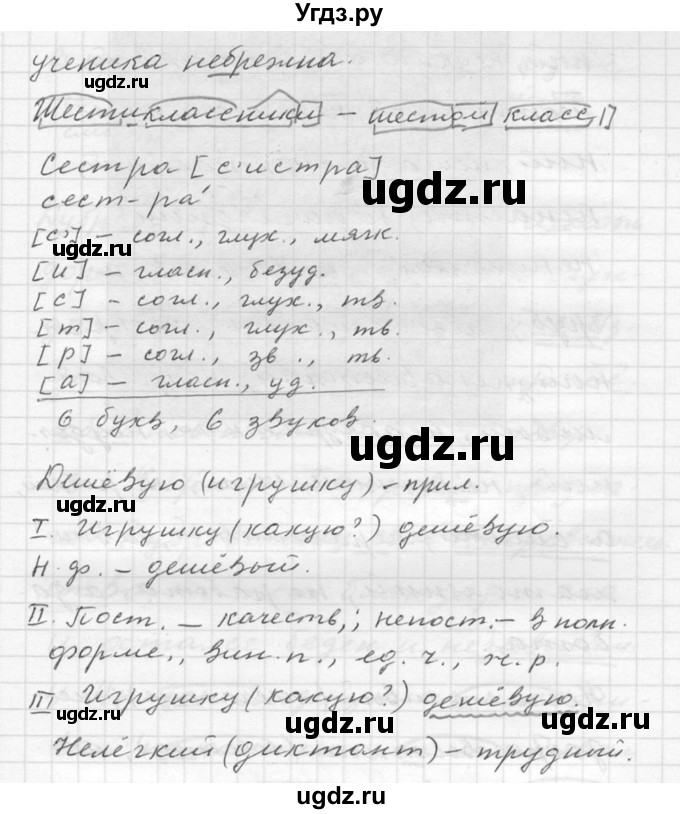 Угдз.ру
ученика небрежна.
gdz.ru
Шестиклассники – шестой класс
gdz.ru
Сестра [с'истра]
ugdz.ru
сест-ра́
[с'] – согл., глух., мягк.
gdz.ru
[и] – гласн., безуд.
[с] – согл., глух., тв.
[т] – согл., глух., тв.
gdz.ru
[р] – согл., зв., тв.
[а] – гласн., уд.
6 букв, 6 звуков.
ugdz.ru
Дешёвую (игрушку) – прил.
I. Игрушку (какую?) дешёвую.
gdz.ru
Н.ф. – дешёвый.
ugdz.ru
II. Пост. – качеств,; непост. – в полн.
форме., вин.п., ед.ч., ж.р.
III Игрушку (какую?) дешёвую.
ugdz.ru
gdz.ru
Нелёгкий (диктант) – трудный.
ugdz.ru
ugdz.ru